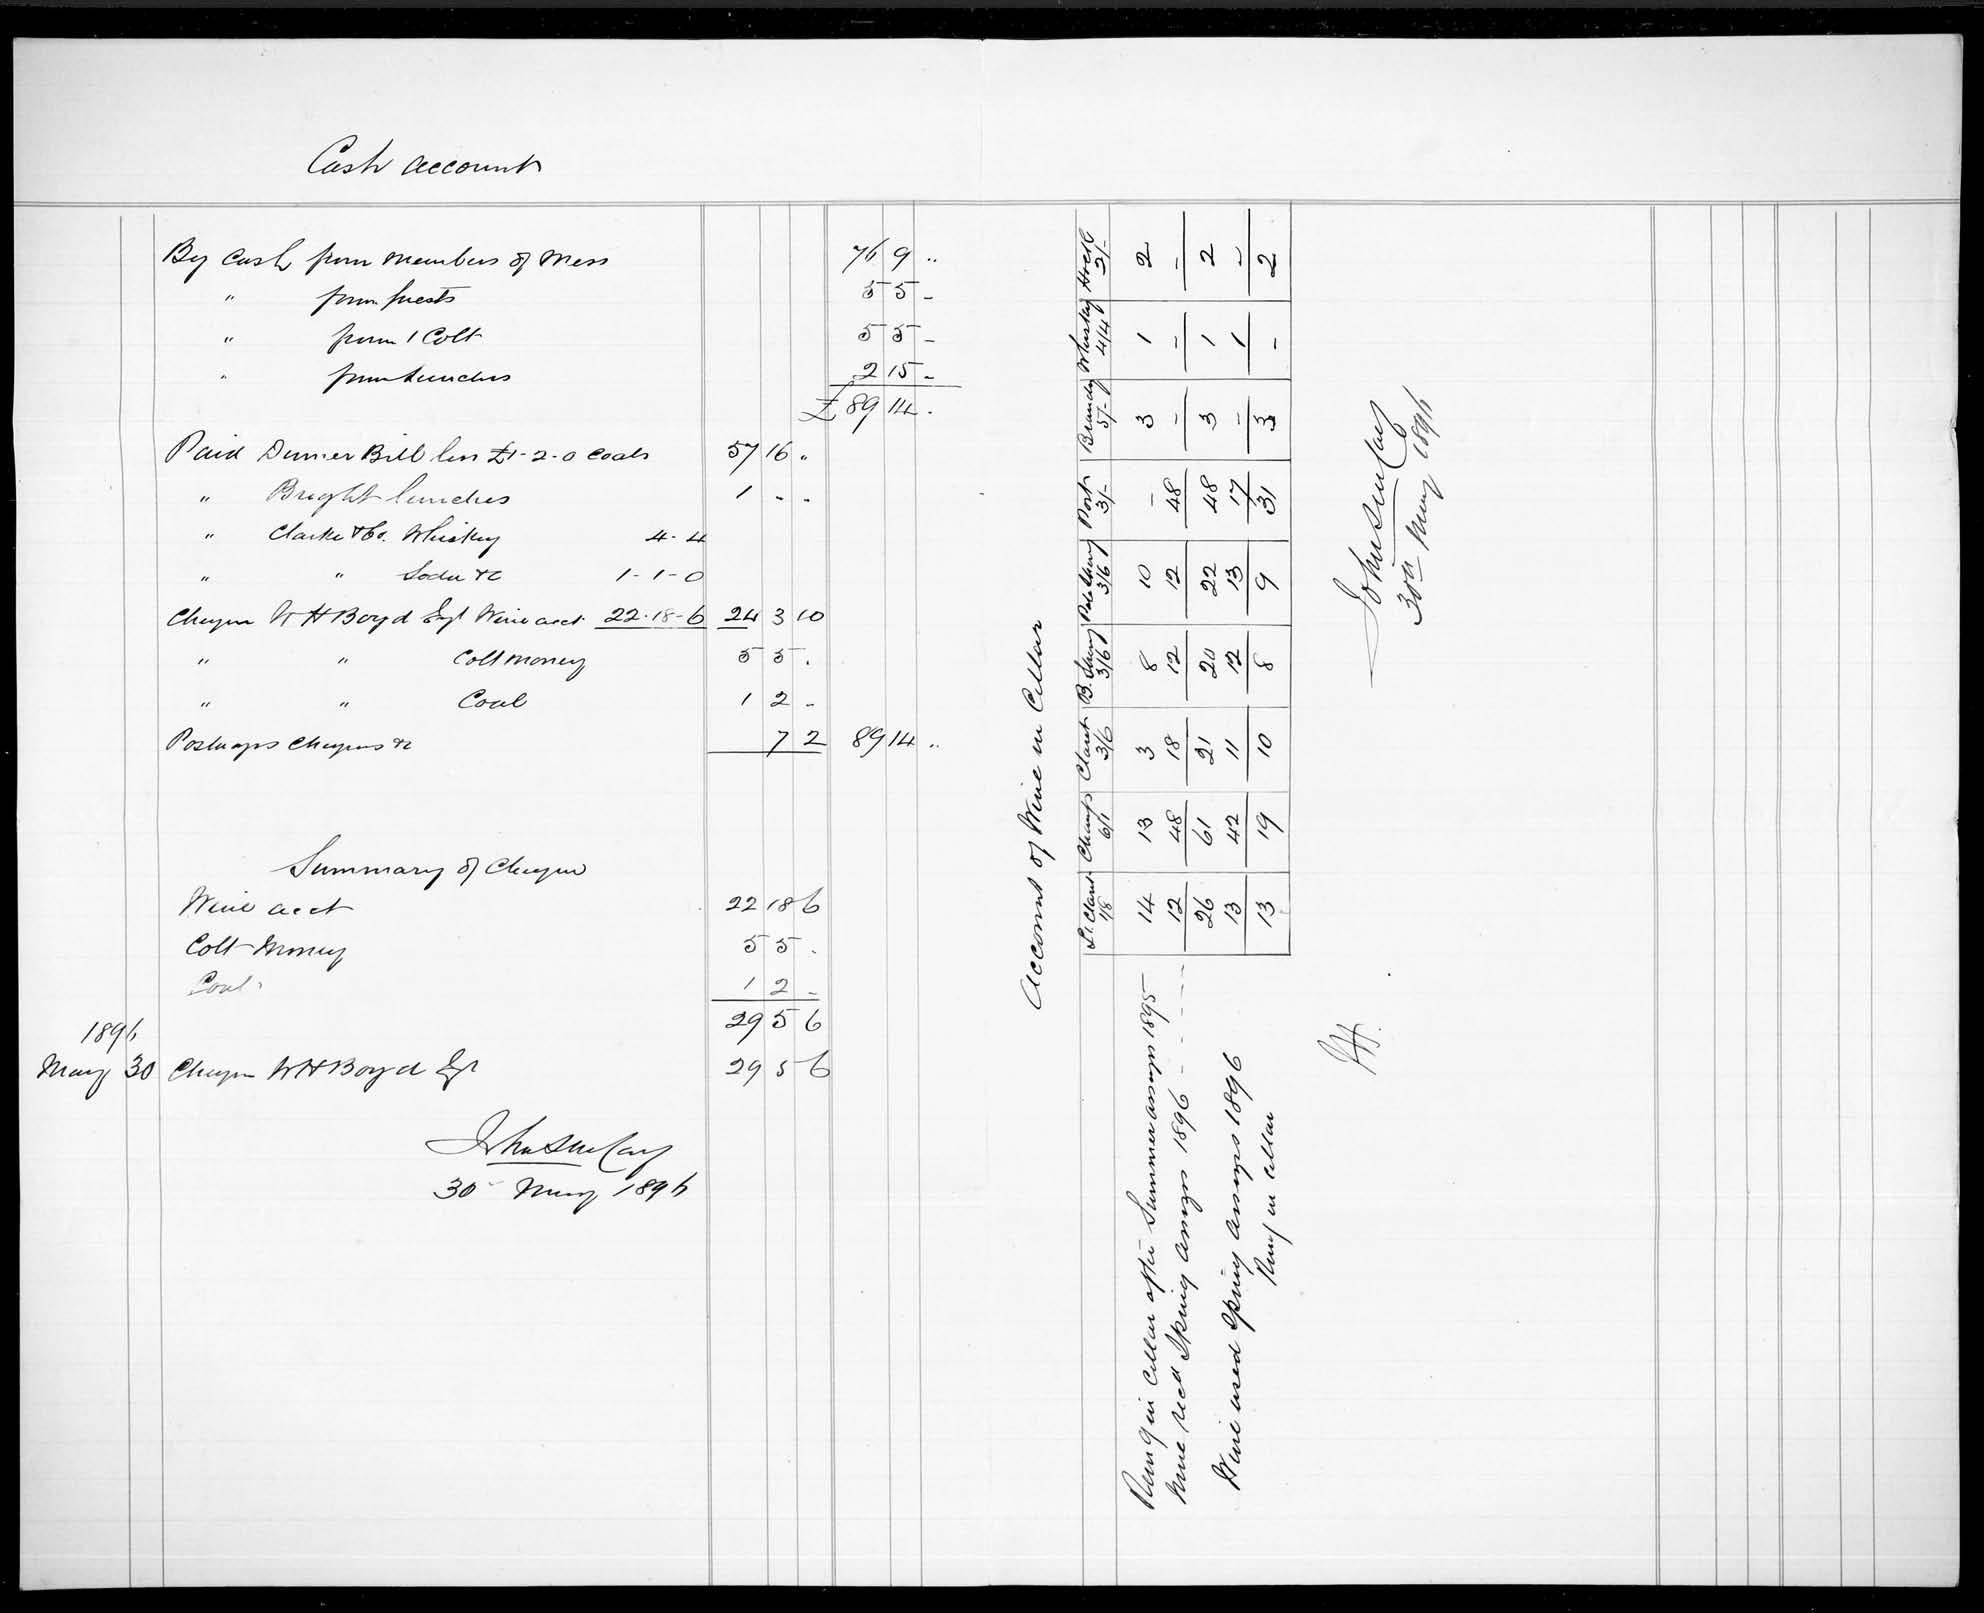 Cash account
By Cash from members of Mess 76 9 "
" from Guests 5 5 -
" from 1 Colt 5 5 -
" from Lunches 2 15 -
£ 89 14 .
Paid Dinner Bill less £1-2-0 Coals 57 16 "
" Bright lunches 1 - -
" Clarke & Co. Whiskey 4-4
" " Soda &c 1-1-0
Cheque W H Boyd Esq Wine acct 22-18-6 24 3 10
" " Colt money 5 5 .
" " Coal 1 2 -
Postages Cheques &c 7 2 89 14 "
Summary of Cheque
Wine acct 22 18 6
Colt Money 5 5 .
Coal 1 2 -
1896 29 5 6
May 30 Cheque W H Boyd Esq 29 5 6
30 May 1896
Account of Wine in Cellar
Lt. Claret Champ Claret B. Sherry Pale Sherry Port Brandy Whiskey Hock
1/8 6/1 3/6 3/6 3/6 3/- 5/- 4/4 2/-
Remg in Cellar after Summer assizes 1895 14 13 3 8 10 - 3 1 2
Wine recd Spring Assizes 1896 - - - - 12 48 18 12 12 48 - - -
26 61 21 20 22 48 3 1 2
Wine used Spring Assizes 1896 13 42 11 12 13 17 - 1 -
Remg in Cellar 13 19 10 8 9 31 3 - 2
30th May 1896